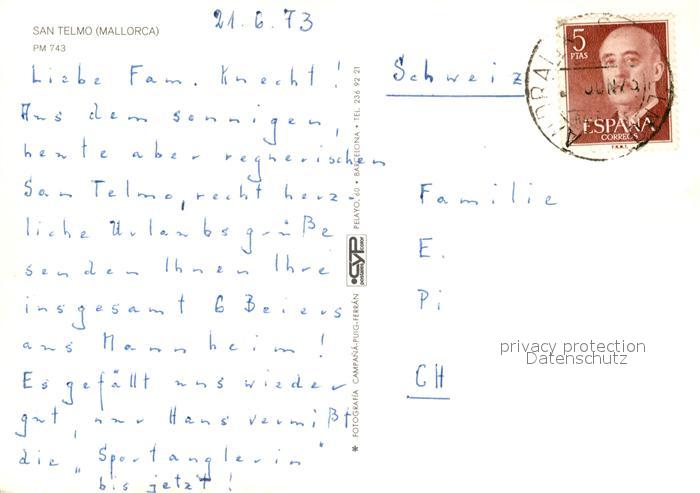 SAN TELMO (MALLORCA)
PM 743
21.6.73
Liebe Fam. Knecht!
Aus dem sonnigen,
heute aber regnerischen
San Telmo, recht herz-
liche Urlaubsgrüße
senden Ihnen Ihre
insgesamt 6 Beiers
aus Mannheim!
Es gefällt uns wieder
gut, nur Hans vermißt
die „Sportanglerin"
bis jetzt!
* FOTOGRAFÍA CAMPAÑÁ-PUIG-FERRÁN
CYP
PELAYO, 60 • BARCELONA • TEL. 236 92 21
Schweiz
5
PTAS
ESPAÑA
CORREOS
F.N.M.T.
JUN 73
Familie
E.
Pi
CH
privacy protection
Datenschutz